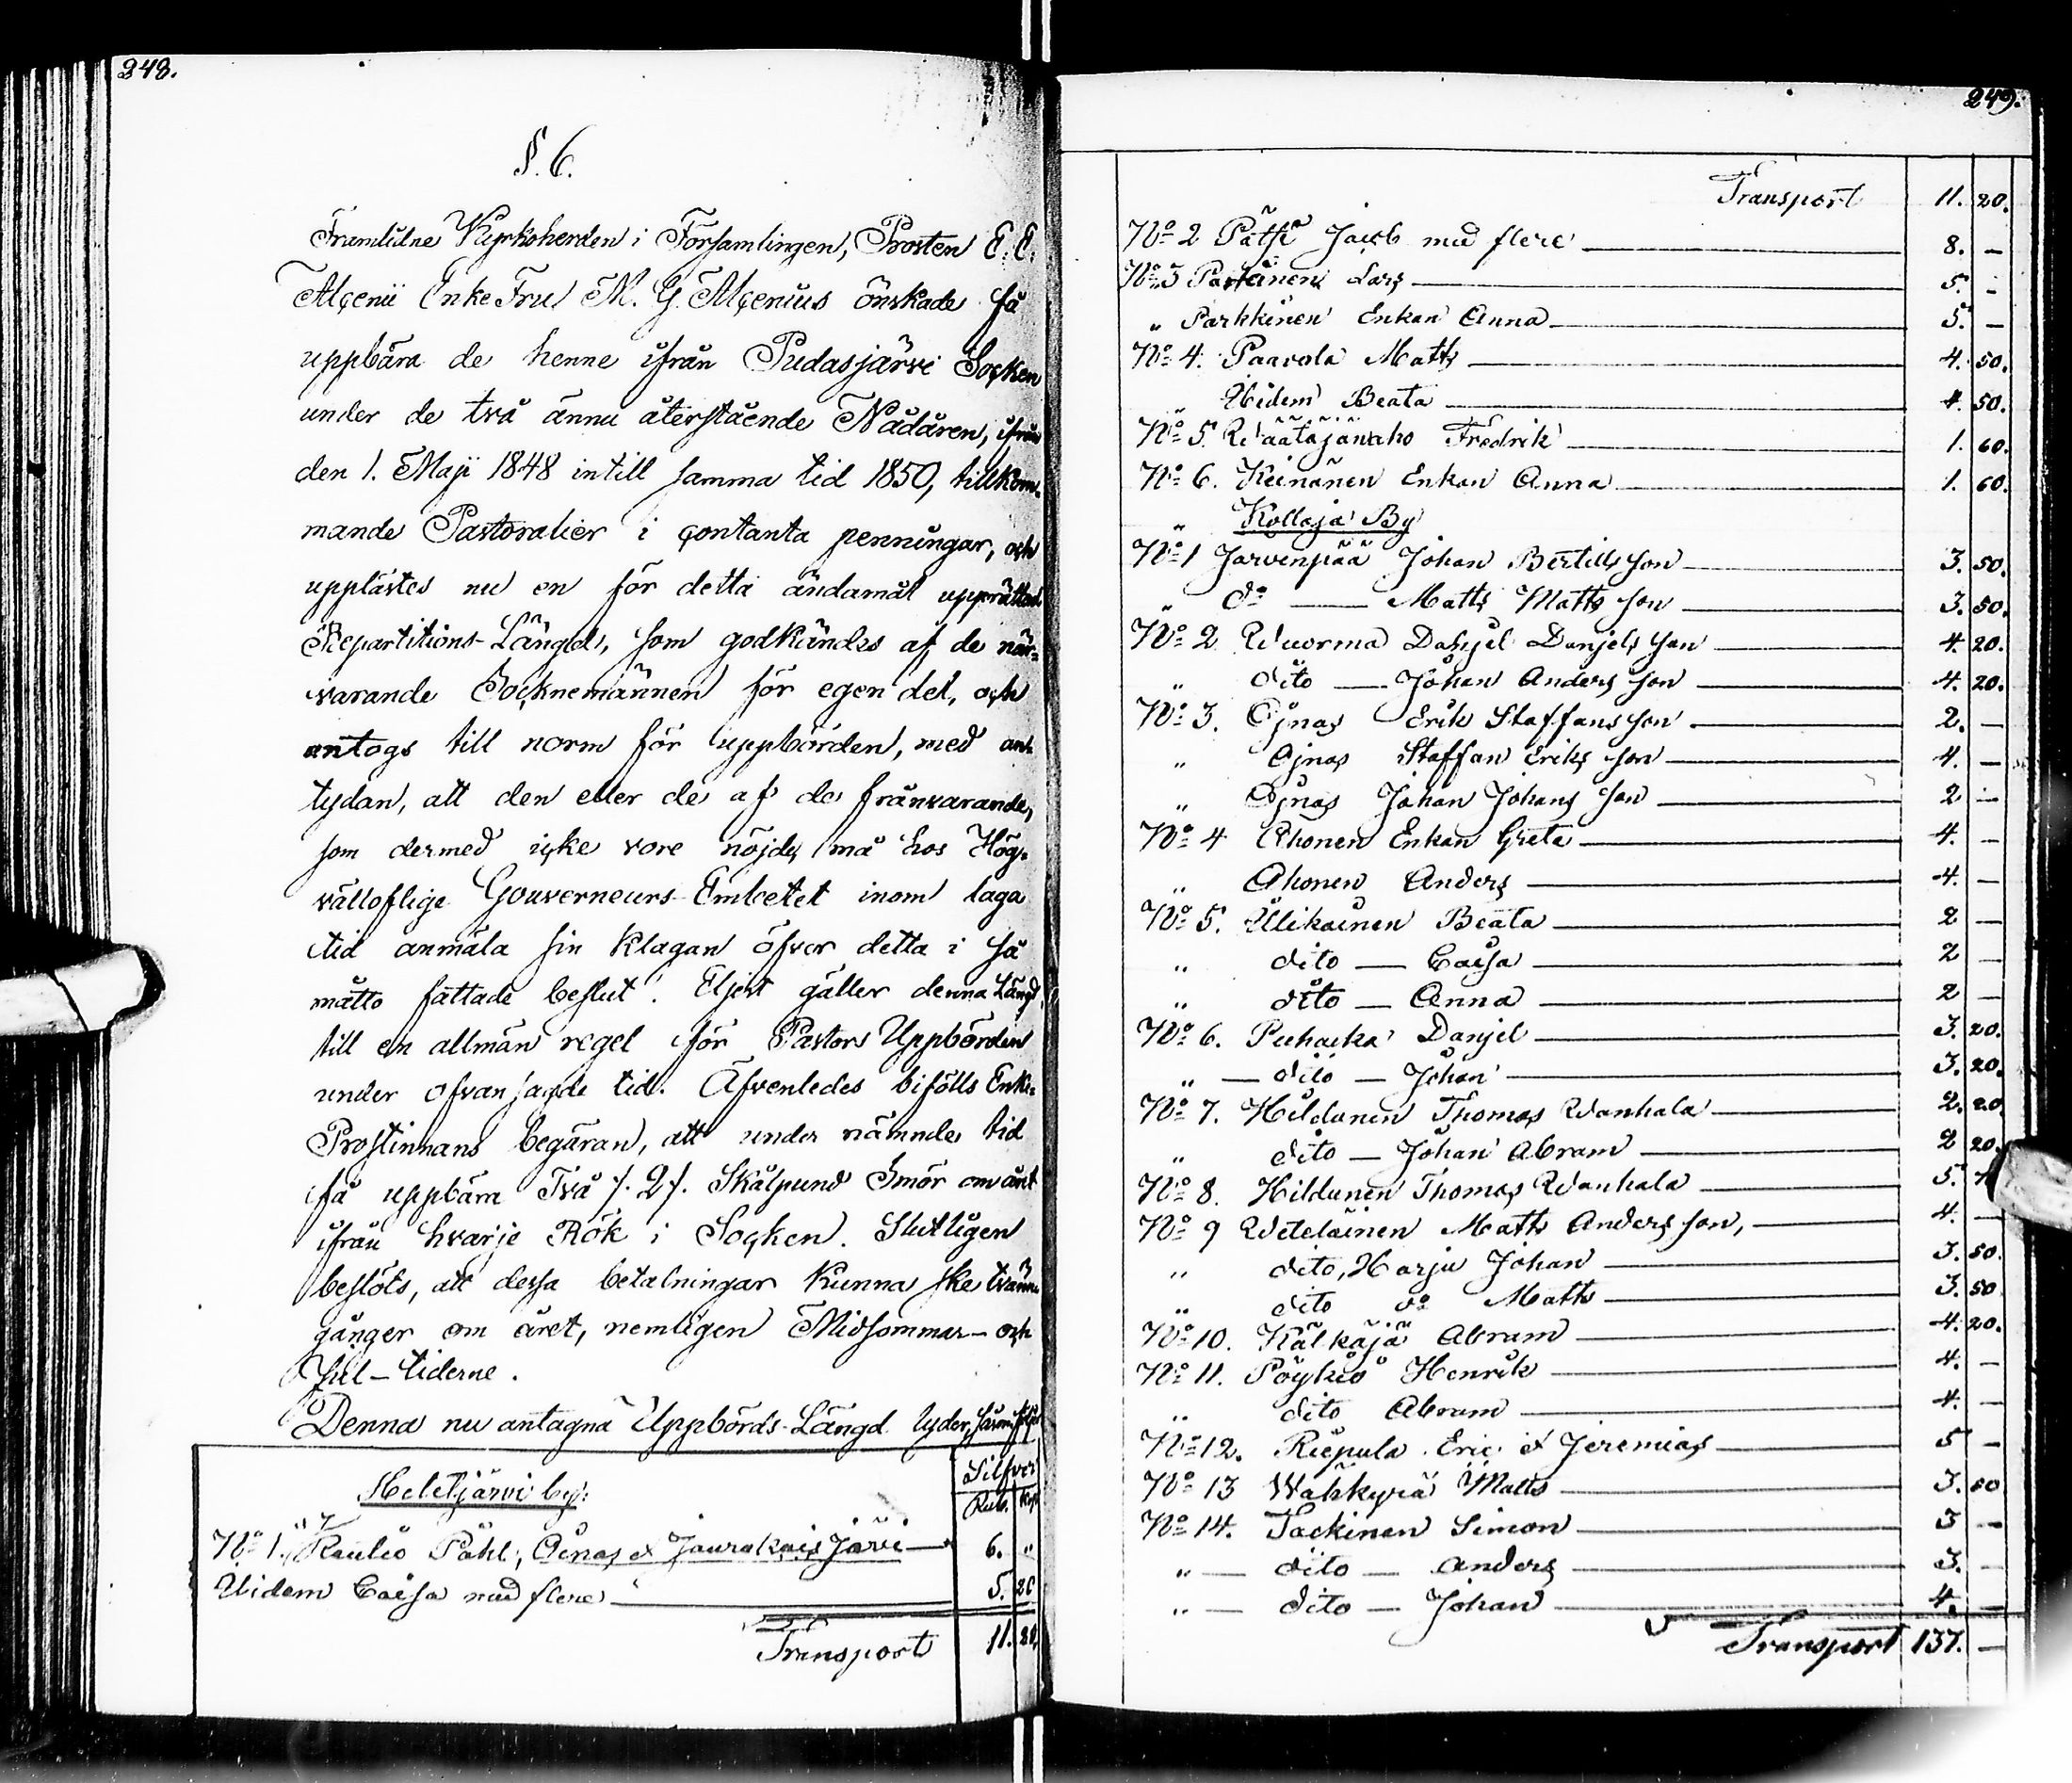 248.
§. 6.
Framlidne Kyrkoherden i Församlingen, Prosten E. E.
Alcenii Enke Fru M. G. Alcenius önskade få
uppbära de henne ifrån Pudasjärvi Socken
under de två ännu återstående Nådåren, ifrån
den 1. Maji 1848 intill samma tid 1850, tillkom-
mande Pastoralier i contanta penningar, och
upplästes nu en för detta ändamål upprättad
Repartitions-Längd, som godkändes af de när-
varande Socknemännen för egen del, och
antogs till norm för uppbörden, med an-
tydan, att den eller de af de frånvarande,
som dermed icke vore nöjde, må hos Hög-
välloflige Gouverneurs-Embetet inom laga
tid anmäla sin klagan öfver detta i så
måtto fattade beslut. Eljest gäller denna Längd
till en allmän regel för Pastors Uppbörden
under ofvansagde tid. Äfvenledes bifölls Enke-
Prostinnans begäran, att under nämnde tid
få uppbära Två /. 2 /. Skålpund Smör om året
ifrån hvarje Rök i Socken. Slutligen
beslöts, att dessa betalningar kunna ske tvänne
gånger om året, nemligen Midsommar- och
Jul-tiderne.
Denna nu antagna Uppbörds-Längd lyder, såsom följer
Silfver
Heletjärvi by: Rub. Kop
No 1. Raulio Påhl, Åenas & Jaurakais Järvi 6. "
Ibidem Caisa med flere 5. 20
Transport 11. 20.
249.
Transport 11. 20.
No 2 Pätsi Jacob med flere 8. –
No 3 Parkinen Lars 5. –
" Parkkinen Enkan Anna 5. –
No 4. Paavola Matts 4. 50.
" Ibidem Beata 4. 50.
No 5. Wäätäjänaho Fredrik 1. 60.
No 6. Keinänen Enkan Anna 1. 60.
" Kollaja By
No 1 Jarvenpää Johan Bertills son 3. 50.
" do — Matts Matts son 3. 50.
No 2 Wuorma Danjel Danjels son 4. 20.
" dito — Johan Anders son 4. 20.
No 3. Ojnas Erik Staffans son 2. –
" Ojnas Staffan Eriks son 4. –
" Ojnas Johan Johans son 2 –
No 4 Ahonen Enkan Greta 4. –
" Ahonen Anders 4. –
No 5. Ülikainen Beata 2 –
" dito — Caisa 2 –
" dito — Anna 2 –
No 6. Puhacka Danjel 3. 20.
" — dito — Johan 3. 20.
No 7. Hildunen Thomas Wanhala 2. 20
" dito — Johan Abram 2 20.
No 8. Hildunen Thomas Wanhala 5.
No 9 Weteläinen Matts Anders son, 4. –
" dito, Harju Johan 3. 50.
" dito do Matts 3. 50
No 10. Kälkäjä Abram 4. 20.
No 11. Pöykiö Henrik 4. –
" dito Abram 4. –
No 12. Riepula Eric & Jeremias 5 –
No 13 Wähkyrä Matts 3. 50
No 14. Tackinen Simon 3 –
" — dito — Anders 3. –
" — dito — Johan 4. –
Transport 137. –